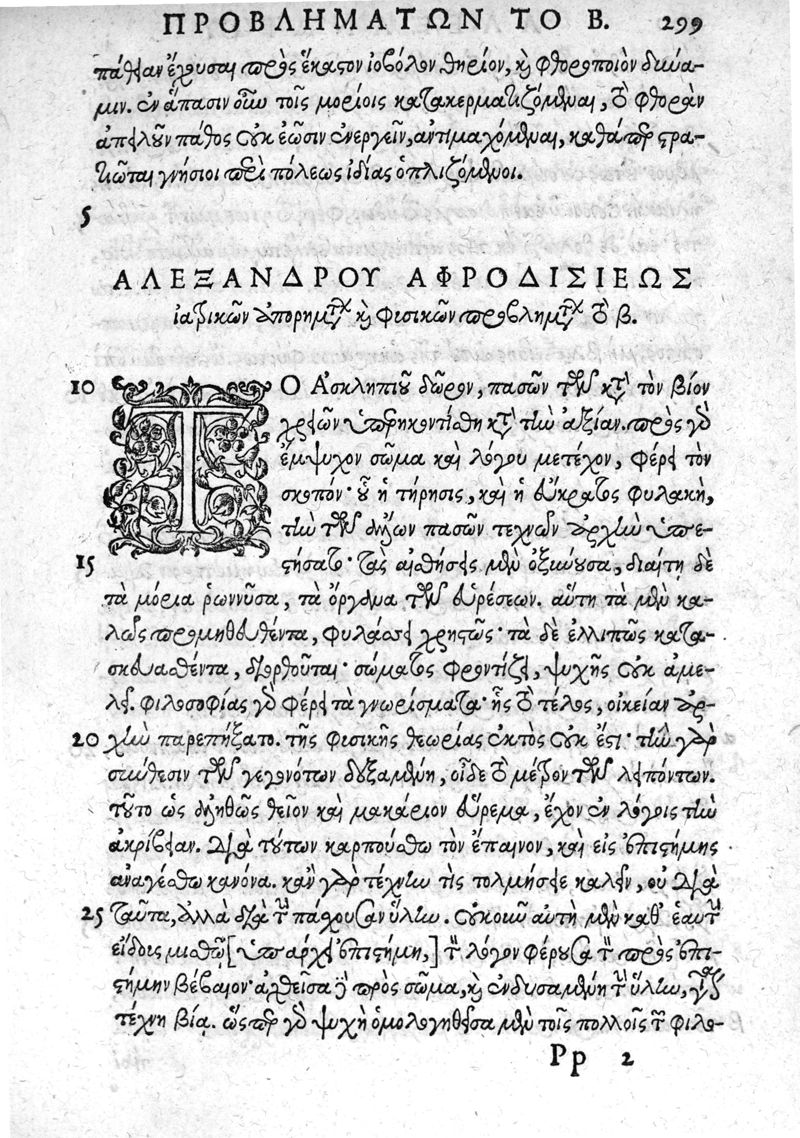 ΠΡΟΒΛΗΜΑΤΩΝ ΤΟ Β. 299
πάθειαν ἔχουσαι πρὸς ἕκαστον ἰοβόλον θηρίον, καὶ φθοροποιὸν δύνα-
μιν. ἐν ἅπασιν οὕτω τοῖς μορίοις κατακερματιζόμεναι, τὸ φθορὰν
ἀπειλοῦν πάθος οὐκ ἐῶσιν ἐνεργεῖν, ἀντιμαχόμεναι, καθάπερ στρα-
τιῶται γνήσιοι περὶ πόλεως ἰδίας ὁπλιζόμενοι.
5
ΑΛΕΞΑΝΔΡΟΥ ΑΦΡΟΔΙΣΙΕΩΣ
ἰατρικῶν ἀπορημάτων καὶ φυσικῶν προβλημάτων τὸ β.
10 ΤΟ Ἀσκληπιοῦ δῶρον, πασῶν τῶν κατὰ τὸν βίον
ὑπερηκοντίσθη κατὰ τὴν ἀξίαν. πρὸς γὰρ
ἔμψυχον σῶμα καὶ λόγου μετέχον, φέρει τὸν
σκοπόν· οὗ ἡ τήρησις, καὶ ἡ εὔκρατος φυλακὴ,
τὴν τῶν ἄλλων πασῶν τεχνῶν ἀρχὴν ὑπε-
15 στήσατο· τὰς αἰσθήσεις μὲν ὀξύνουσα, διαίτῃ δὲ
τὰ μόρια ρωννῦσα, τὰ ὄργανα τῶν εὑρέσεων. αὕτη τὰ μὲν κα-
λῶς προμηθευθέντα, φυλάσσει χρηστῶς· τὰ δὲ ἐλλιπῶς κατα-
σκευασθέντα, διορθοῦται· σώματος φροντίζει, ψυχῆς οὐκ ἀμε-
λεῖ. φιλοσοφίας γὰρ φέρει τὰ γνωρίσματα· ἧς τὸ τέλος, οἰκείαν ἀρ-
20 χὴν παρεπήξατο. τῆς φυσικῆς θεωρίας ἐκτὸς οὐκ ἔστι· τὴν γὰρ
σύνθεσιν τῶν γεγονότων δοξαμένη, οἶδε τὸ μέτρον τῶν λειπόντων.
τοῦτο ὡς ἀληθῶς θεῖον καὶ μακάριον εὕρεμα, ἔχον ἐν λόγοις τὴν
ἀκρίβειαν. διὰ τούτων καρπούσθω τὸν ἔπαινον, καὶ εἰς ἐπιστήμης
ἀναγέσθω κανόνα. κἂν γὰρ τέχνην τὶς τολμήσειε καλεῖν, οὐ διὰ
25 ταῦτα, ἀλλὰ διὰ τὴν πάσχουσαν ὕλην. οὐκοῦν αὐτὴ μὲν καθ' ἑαυτὴν
[ὑπάρχει ἐπιστήμη,] τὸν λόγον φέρουσα τὸν πρὸς ἐπι-
στήμην βέβαιον· ἀχθεῖσα δὲ πρὸς σῶμα, καὶ ἐνδυσαμένη τὴν ὕλην,
τέχνη βίᾳ. ὥσπερ γὰρ ψυχὴ ὁμολογηθεῖσα μὲν τοῖς πολλοῖς τῶν φιλο-
Pp 2